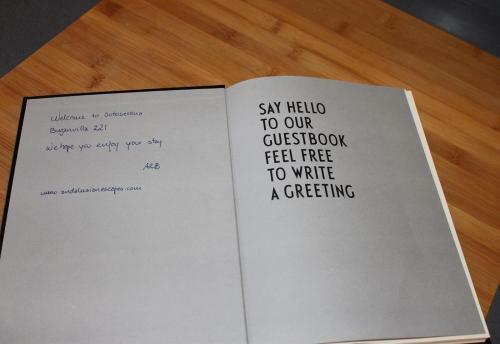 Welcome to Sotoserena
Buganvilla 221
We hope you enjoy your stay
A&B
www.andalusianescapes.com
SAY HELLO
TO OUR
GUESTBOOK
FEEL FREE
TO WRITE
A GREETING